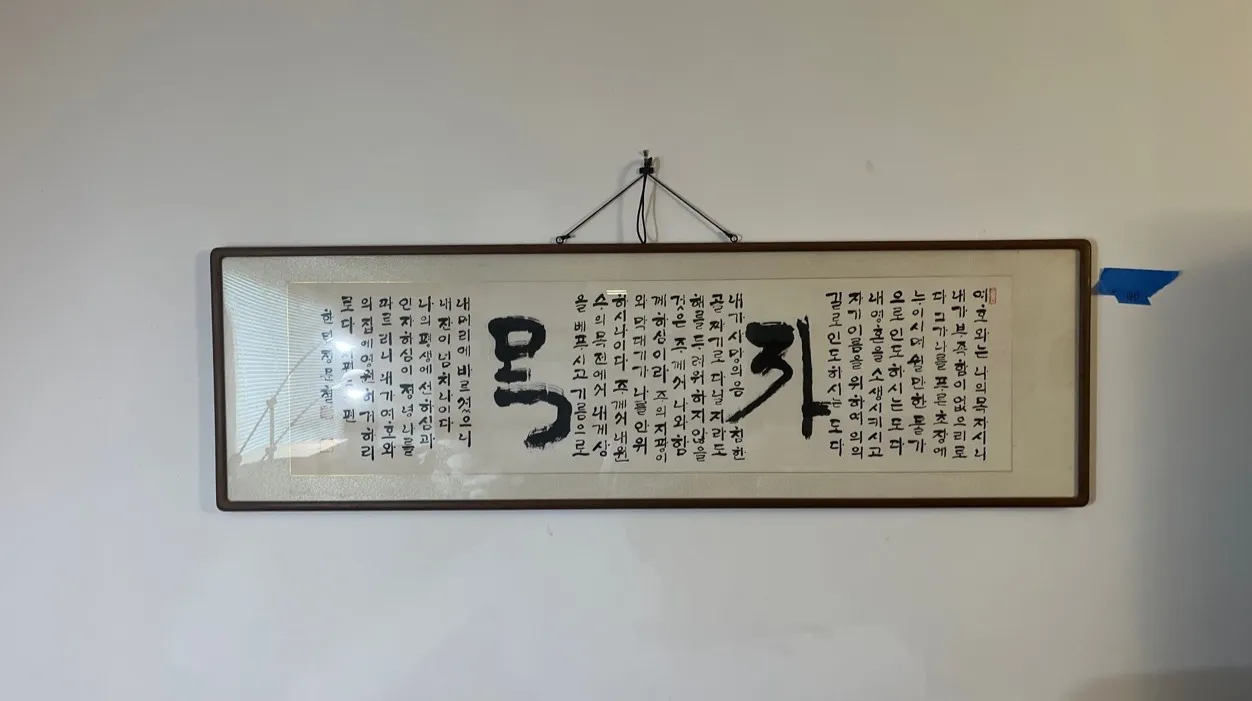 여호와는 나의 목자시니
내가 부족함이 없으리로
다 그가 나를 푸른 초장에
누이시며 쉴만한 물가
으로 인도하시는도다
내 영혼을 소생시키시고
자기 이름을 위하여 의의
길로 인도하시는도다
자
내가 사망의 음침한
골짜기로 다닐지라도
해를 두려워하지 않을
것은 주께서 나와 함
께 하심이라 주의 지팡이
와 막대기가 나를 안위
하시나이다 주께서 내 원
수의 목전에서 내게 상
을 베푸시고 기름으로
목
내 머리에 바르셨으니
내 잔이 넘치나이다
나의 평생에 선하심과
인자하심이 정녕 나를
따르리니 내가 여호와
의 집에 영원히 거하리
로다 편